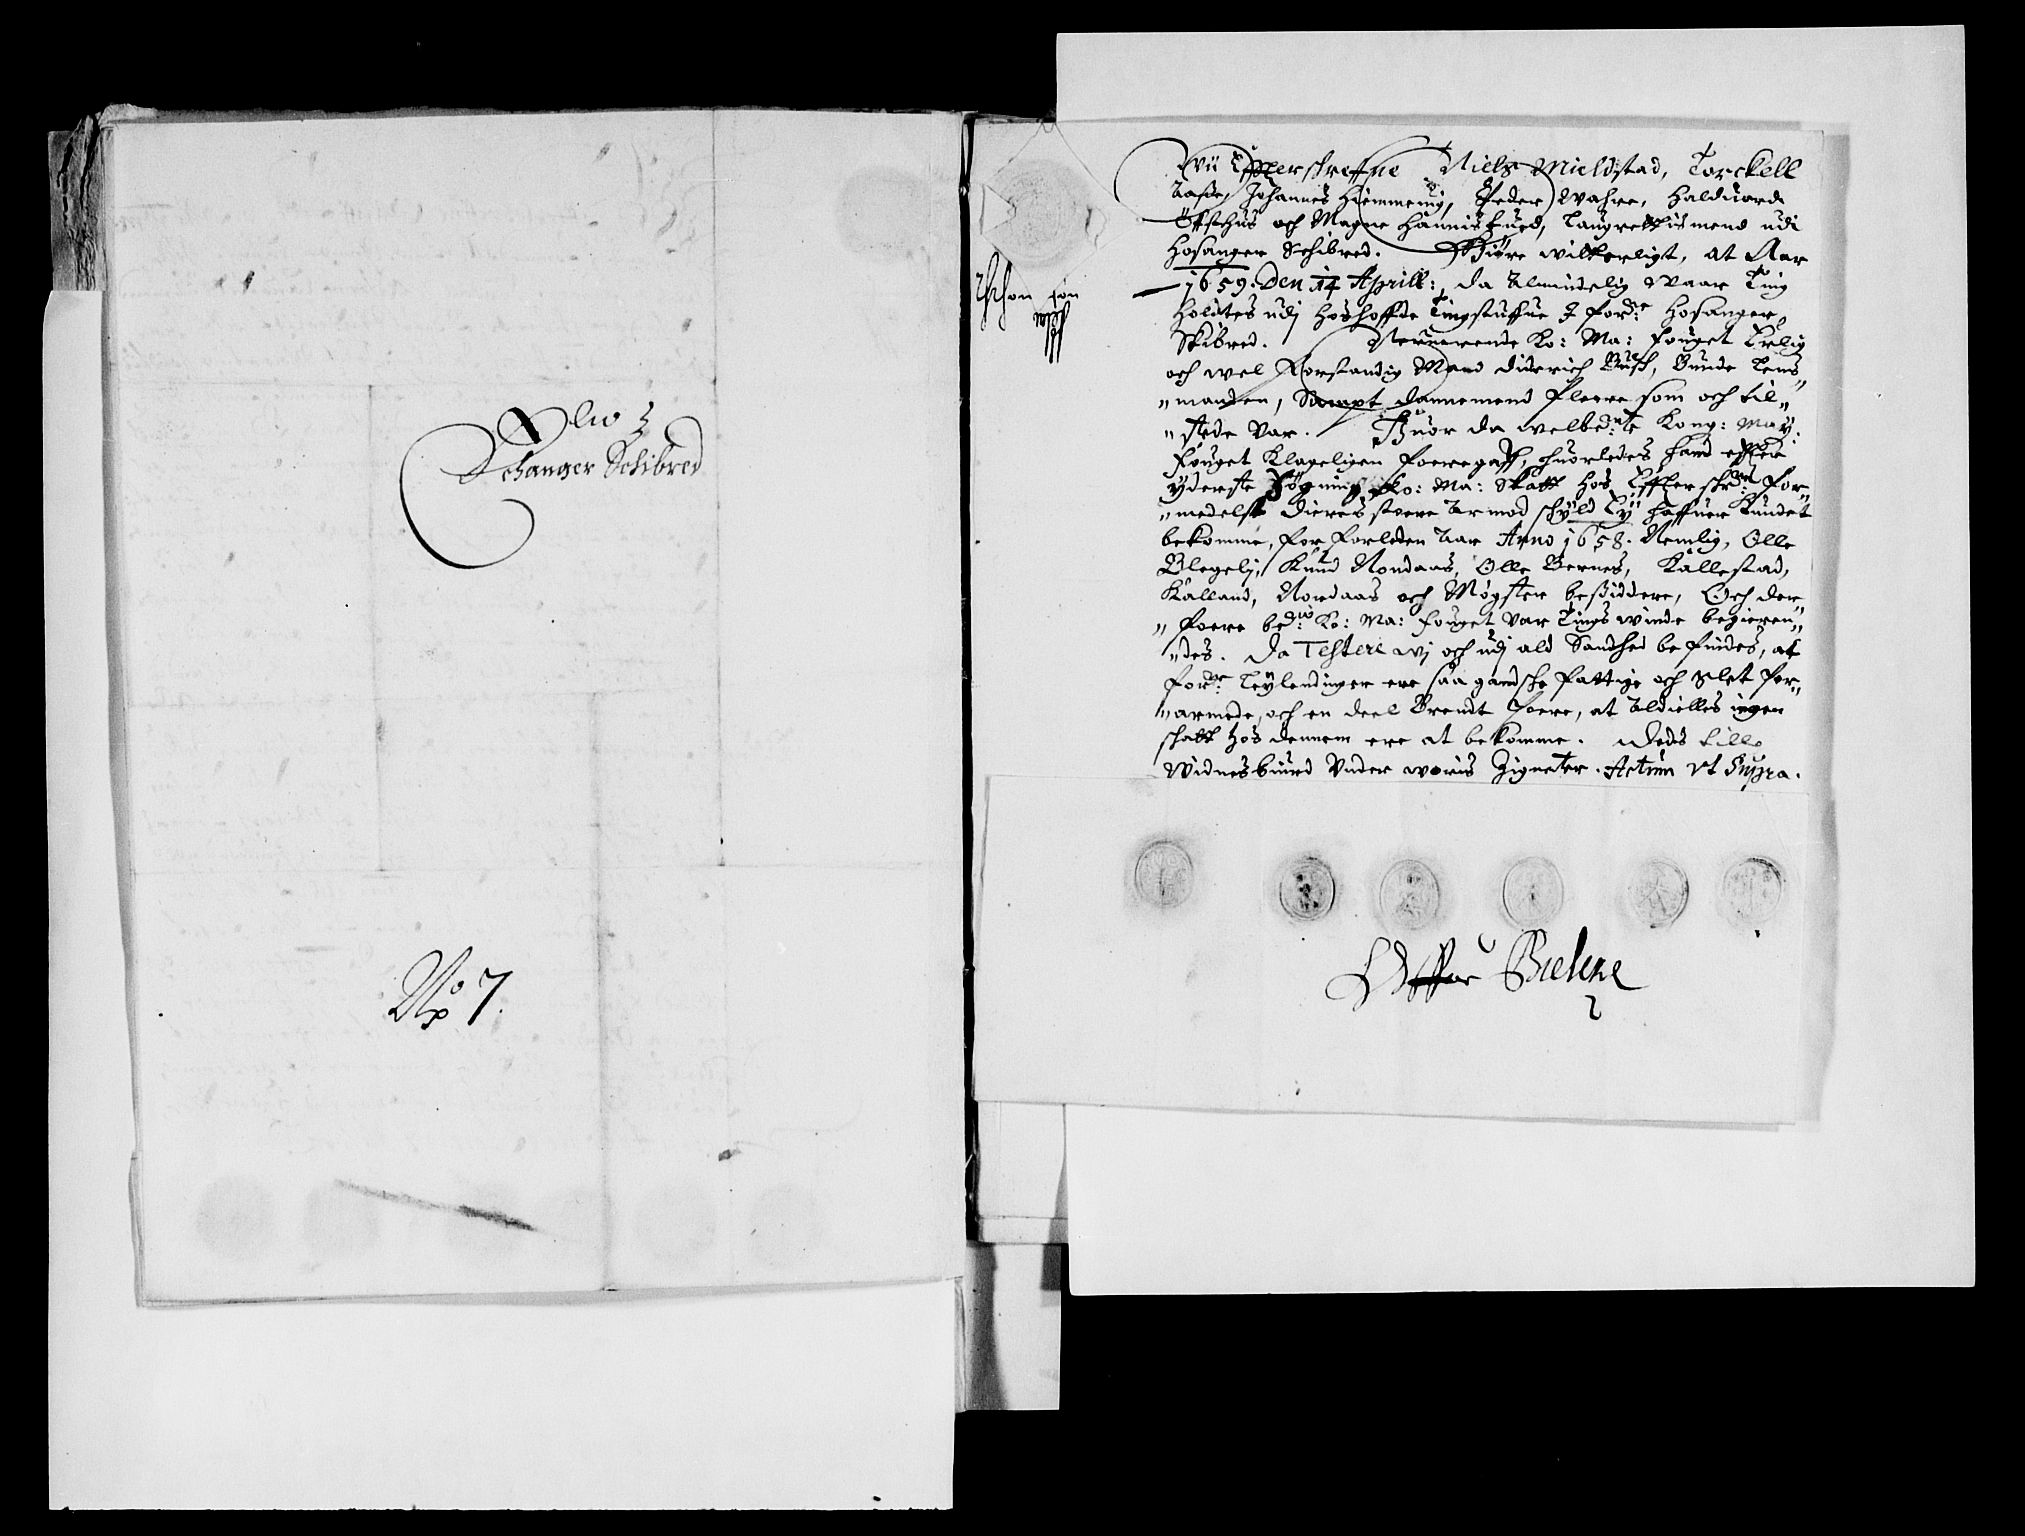 Schanger Schibred
No 7.
Wii Effterschreffne Niels Mieldstad, Torckell
Johannes Hiemmeing, Peder Wahre, Halduard
och Magne Hannisfued, Laugrettismend udi
Hosanger Schibred. Giøre witterligt, at Aar
1659. Den 14 Aprill: da Almindelig Waar Ting
Holdtes udj Hoshoffde Tingstuffue J for:ne Hosanger
Skibred. Neruerende Ko: Ma: Fouget Erlig
och wel Forstandig Mand Diderich Busch, Bunde Lens
"manden, Sampt dannemend fleere som och til"
"stede Var. Huor da welbe:te Kong: May:
Fouget Klageligen foeregaff, huorledes hand effter
yderste Søgning Ko: Ma: Skatt Hos Effterschr:ne For"
"medelst dieres stoere Armod schyld Ey haffuer Kundet
bekomme, for forleden Aar Anno 1658. Nemlig, Olle
Blegelj, Knud Nondaas, Olle Bernes, Kallestad,
Kalland, Nordaas och Møgster besiddere, Och der"
"foere be:te Ko: Ma: Fouget Var Tings winde begieren"
"des. Da Testere wj och udj ald Sandhed befindes, at
for:ne Leylendinger ere saa gandsche fattige och slet for"
"armede, och en deel Brendt foere, at Aldielles ingen
schatt hos dennem ere at bekomme. Dieds till
Widnesbiurd Vnder woris Zigneter. Actum Vt Supra.
Bielcke